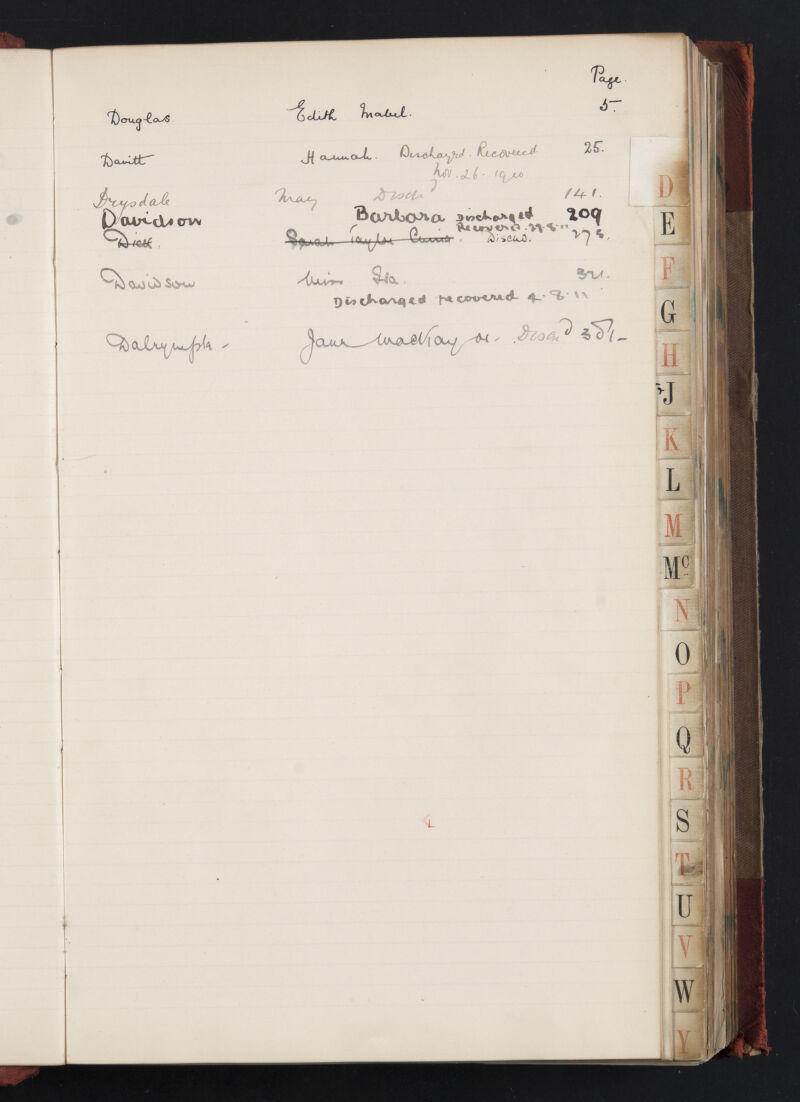 Page.
Douglas. Edith Mabel. 5.
Davitt Hannah. Dischargd. Recovered 25.
Nov. 26. 1910
Drysdale May Dischd 141.
Davidson Barbara Discharged 209
Recovered 29.8.11
Dick. Sarah Taylor Dischd. 278.
Davidson Miss Ida. 321.
Discharged recovered 4.8.11
Dalrymple - Jane MacKay or - Dischd 351 -
D
E
F
G
H
J
K
L
M
Mc
N
O
P
Q
R
S
T
U
V
W
Y